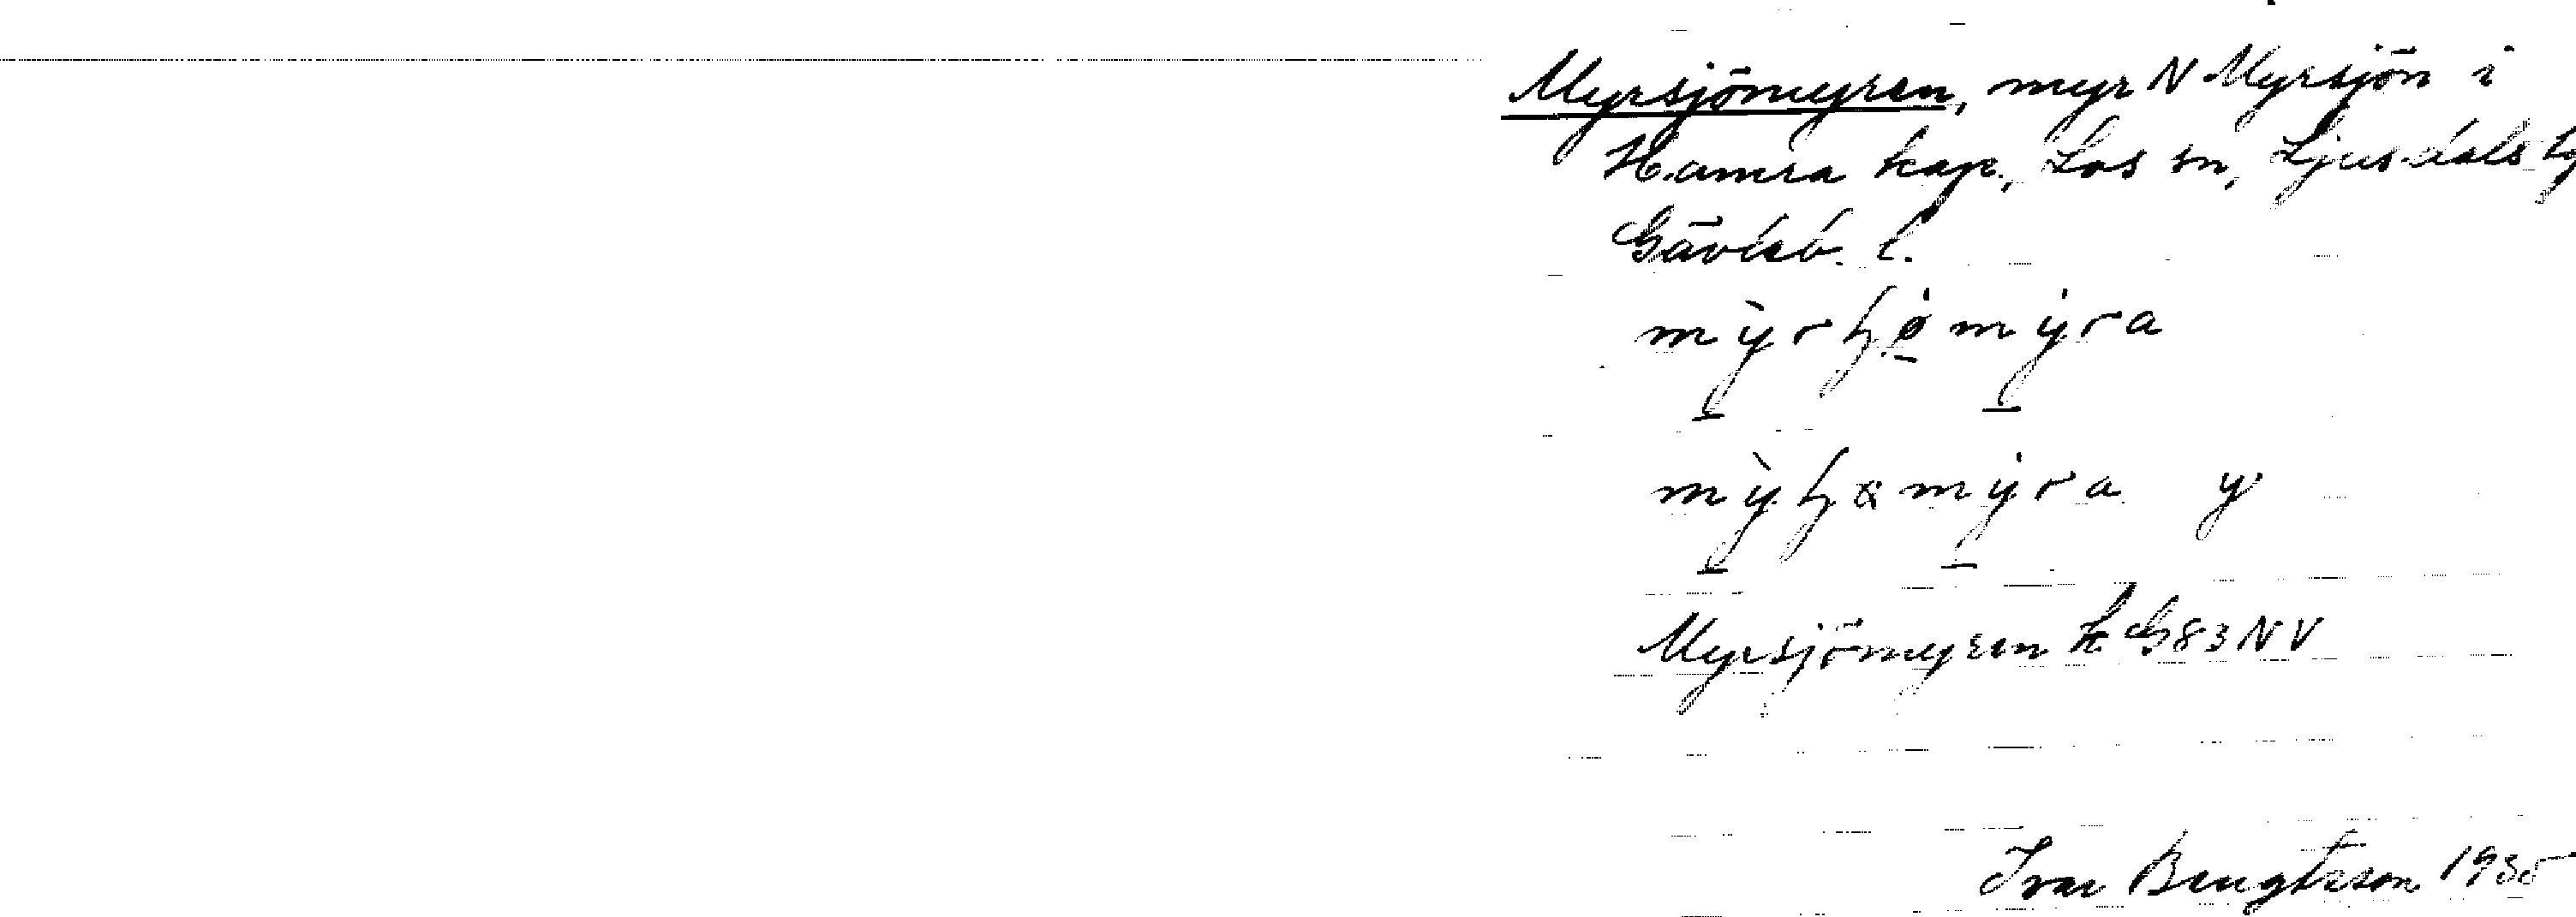 Myrsjömyren, myr N Myrsjön i
Hamra kap., Los sn, Ljusdals
Gävleb. l.
mỳrɧømyra
mỳɧɷmyra y
Myrsjömyren k G83NV
Ivar Bengtsson 1935